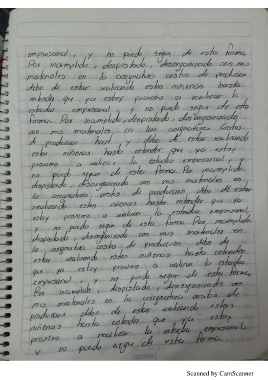 empresarial, y no puedo seguir de esta forma.
Por incumplido, despistado, desorganizado con mis
materiales en la asignatura costos de produccion
debo de estar realizando estas mineras hasta
entender que ya estoy proximo a realizar la
estadia empresarial, y no puedo seguir de esta
forma. Por incumplido, despistado, desorganizado
con mis materiales, en la asignatura costos
de produccion debo de estar realizando
estas mineras hasta entender que ya estoy
proximo a realizar la estadia empresarial, y
no puedo seguir de esta forma. Por incumplido
despistado, desorganizado con mis materiales en
la asignatura costos de produccion, debo de estar
realizando estas mineras hasta entender que ya
estoy proximo a realizar la estadia empresarial,
y no puedo seguir de esta forma. Por incumplido
despistado, desorganizado con mis materiales en
la asignatura costos de produccion, debo de
estar realizando estas mineras hasta entender
que ya estoy proximo a realizar la estadia
empresarial, y no puedo seguir de esta forma.
Por incumplido, despistado y desorganizado con
mis materiales en la asignatura costos de
produccion debo de estar realizando estas
mineras hasta entender que ya estoy
proximo a realizar la estadia empresarial,
y no puedo seguir de esta forma.
Scanned by CamScanner